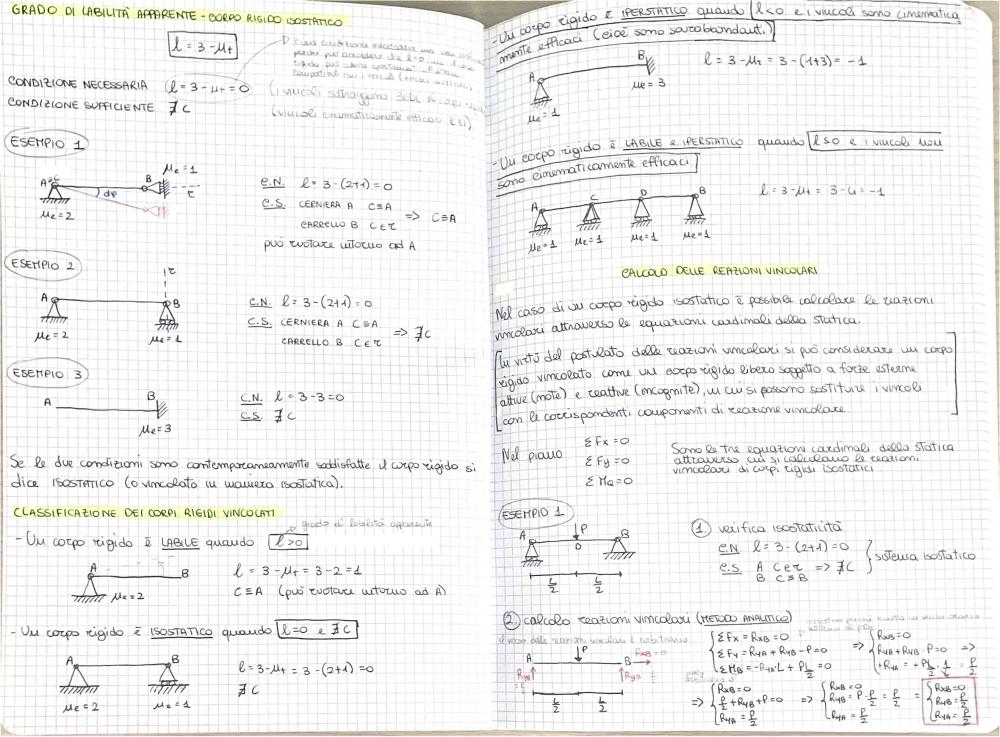 GRADO DI LABILITÀ APPARENTE - CORPO RIGIDO ISOSTATICO
l = 3 - μt
CONDIZIONE NECESSARIA l = 3 - μt = 0
CONDIZIONE SUFFICIENTE ∄ C
ESEMPIO 1
A≡C
B
μe = 1
dφ
r
μe = 2
C.N. l = 3 - (2+1) = 0
C.S. CERNIERA A C≡A
CARRELLO B C∈r => C≡A
può ruotare intorno ad A
ESEMPIO 2
r
A
B
μe = 2
μe = 1
C.N. l = 3 - (2+1) = 0
C.S. CERNIERA A C≡A
CARRELLO B C∈r => ∄C
ESEMPIO 3
A
B
μe = 3
C.N. l = 3 - 3 = 0
C.S. ∄ C
Se le due condizioni sono contemporaneamente soddisfatte il corpo rigido si
dice ISOSTATICO (o vincolato in maniera isostatica).
CLASSIFICAZIONE DEI CORPI RIGIDI VINCOLATI
grado di labilità apparente
- Un corpo rigido è LABILE quando l > 0
A
B
μe = 2
l = 3 - μt = 3 - 2 = 1
C≡A (può ruotare intorno ad A)
- Un corpo rigido è ISOSTATICO quando l=0 e ∄ C
A
B
μe = 2
μe = 1
l = 3 - μt = 3 - (2+1) = 0
∄ C
- Un corpo rigido è IPERSTATICO quando l<0 e i vincoli sono cinematica
mente efficaci (cioè sono sovrabbondanti.)
A
B
μe = 1
μe = 3
l = 3 - μt = 3 - (1+3) = -1
- Un corpo rigido è LABILE e IPERSTATICO quando l≤0 e i vincoli non
sono cinematicamente efficaci
A
C
D
B
μe = 1
μe = 1
μe = 1
μe = 1
l = 3 - μt = 3 - 4 = -1
CALCOLO DELLE REAZIONI VINCOLARI
Nel caso di un corpo rigido isostatico è possibile calcolare le reazioni
vincolari attraverso le equazioni cardinali della statica.
In virtù del postulato delle reazioni vincolari si può considerare un corpo
rigido vincolato come un corpo rigido libero soggetto a forze esterne
attive (note) e reattive (incognite), in cui si possono sostituire i vincoli
con le corrispondenti componenti di reazione vincolare
Nel piano
ΣFx = 0
ΣFy = 0
ΣMQ = 0
Sono le tre equazioni cardinali della statica
attraverso cui si calcolano le reazioni
vincolari di corpi rigidi isostatici
ESEMPIO 1
A
P
D
B
L/2
L/2
1. verifica isostaticità
C.N. l = 3 - (2+1) = 0
C.S. A C∈r => ∄C
B C≡B
sistema isostatico
2. calcolo reazioni vincolari (METODO ANALITICO)
il verso delle reazioni vincolari è arbitrario
A
P
B
RxB = 0
RyA
RyB
L/2
L/2
ΣFx = RxB = 0
ΣFy = RyA + RyB - P = 0
ΣMB = -RyA·L + P L/2 = 0
=> RxB = 0
RyA + RyB - P = 0 =>
+RyA = + PL/2 · 1/L = P/2
=> RxB = 0
P/2 + RyB + P = 0
RyA = P/2
=> RxB = 0
RyB = P - P/2 = P/2
RyA = P/2
= RxB = 0
RyB = P/2
RyA = P/2